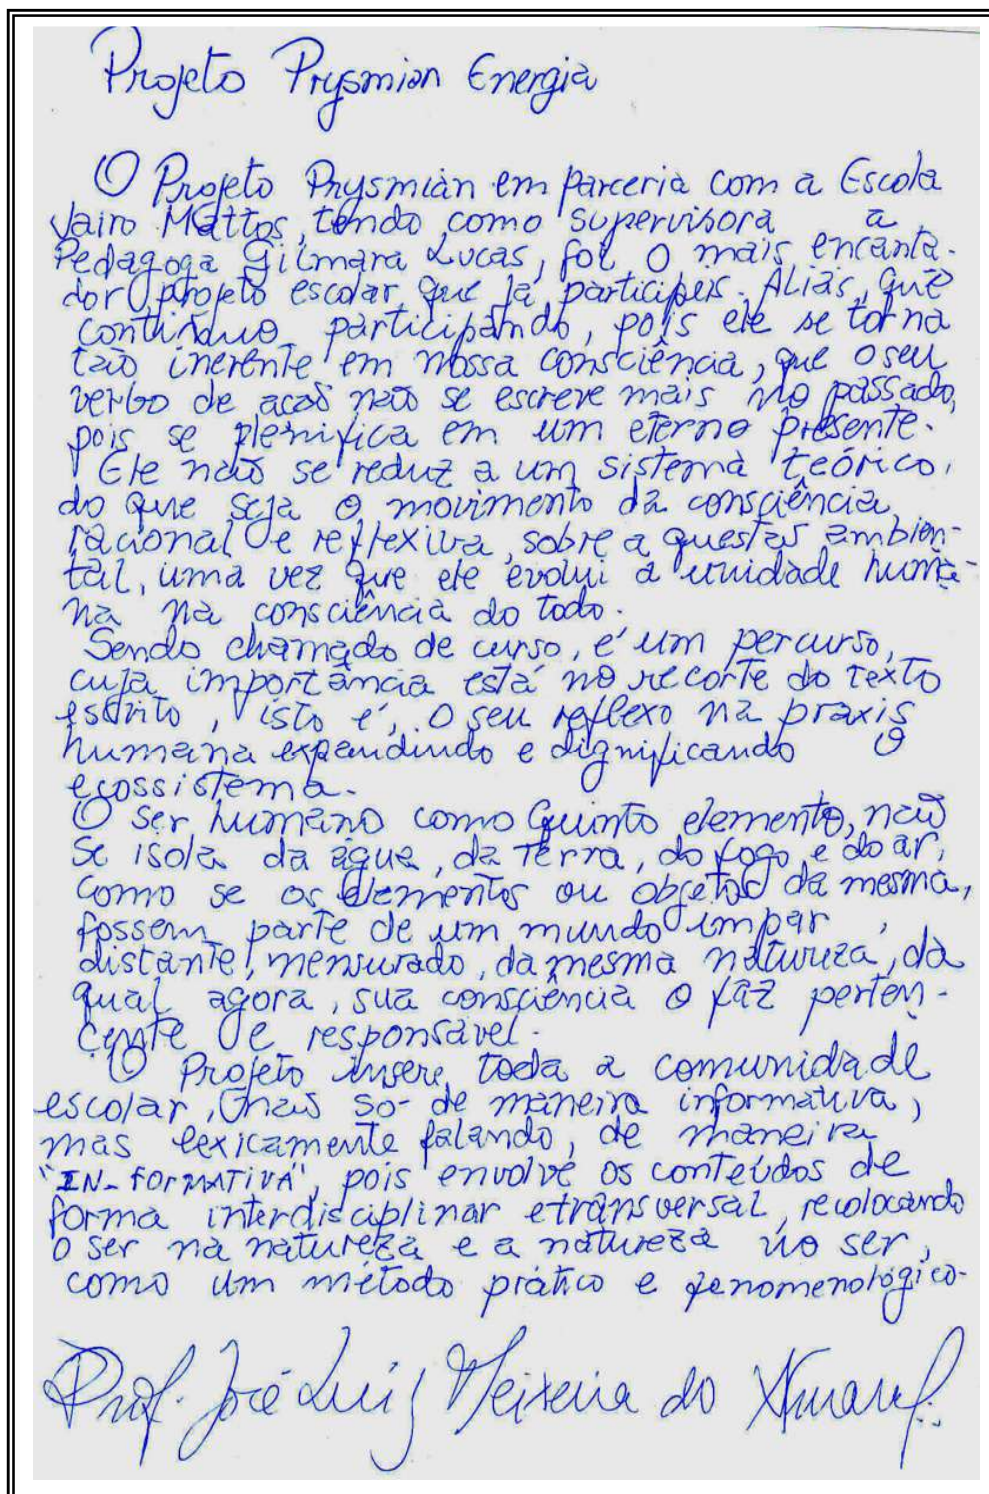 Projeto Prysmian Energia
O Projeto Prysmian em parceria com a Escola
Jairo Mattos, tendo como supervisora a
Pedagoga Gilmara Lucas, foi o mais encanta-
dor projeto escolar que já participeis. Aliás, que
continuo participando, pois ele se torna
tão inerente em nossa consciência, que o seu
verbo de acaõ não se escreve mais no passado,
pois se plenifica em um eterno presente.
Ele não se reduz a um sistema teórico,
do que seja o movimento da consciência
racional e reflexiva, sobre a questão ambien-
tal, uma vez que ele evolui a unidade huma-
na na consciência do todo.
Sendo chamado de curso, é um percurso,
cuja importância está no recorte do texto
escrito, isto é, o seu reflexo na praxis
humana expandindo e dignificando o
ecossistema.
O ser humano como quinto elemento, não
se isola da água, da terra, do fogo e do ar,
como se os elementos ou objetos da mesma,
fossem parte de um mundo impar,
distante, mensurado, da mesma natureza, da
qual agora, sua consciência o faz perten-
cente e responsável.
O Projeto insere toda a comunidade
escolar, não só de maneira informativa,
mas lexicamente falando, de maneira
"IN-FORMATIVA", pois envolve os conteúdos de
forma interdisciplinar e transversal, recolocando
o ser na natureza e a natureza no ser,
como um método prático e fenomenológico.
Prof. José Luiz Teixeira do Amaral.